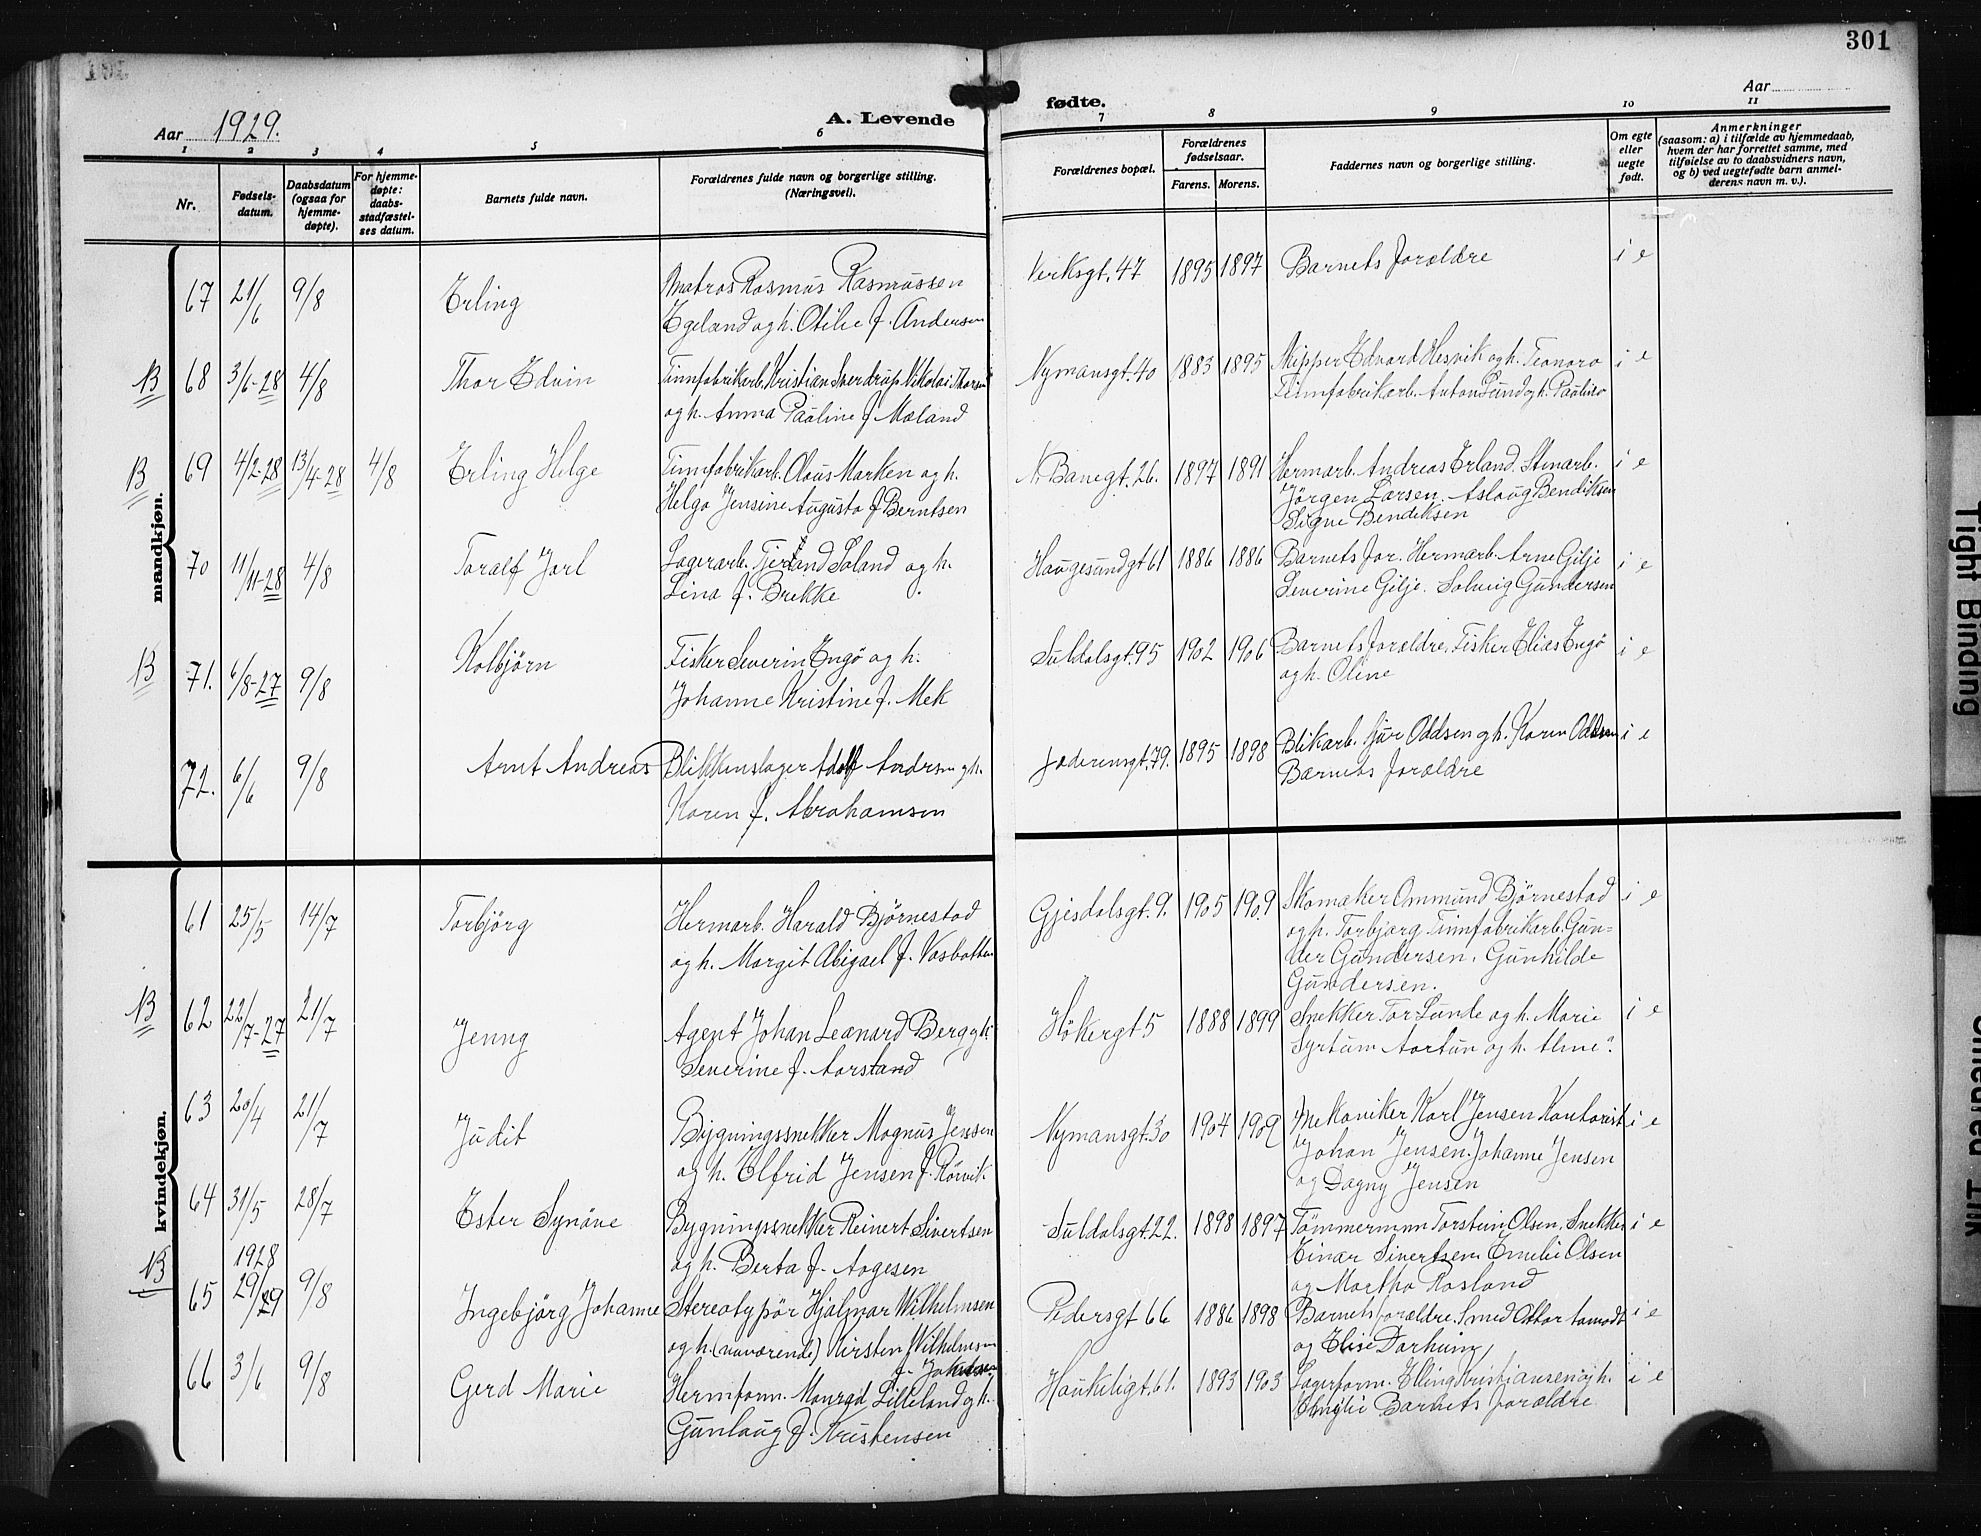 301
Aar 1929.
A. Levende
fødte.
Aar
1 2 3 4 5 6 7 8 9 10 11
Nr.
Fødsels-
datum.
Daabsdatum
(ogsaa for
hjemme-
døpte).
For hjemme-
døpte:
daabs-
stadfæstel-
ses datum.
Barnets fulde navn.
Forældrenes fulde navn og borgerlige stilling.
(Næringsvei).
Forældrenes bopæl.
Forældrenes
fødselsaar.
Farens. Morens.
Faddernes navn og borgerlige stilling.
Om egte
eller
uegte
født.
Anmerkninger
(saasom: a) i tilfælde av hjemmedaab,
hvem der har forrettet samme, med
tilføielse av to daabsvidners navn,
og b) ved uegtefødte barn anmel-
derens navn m. v.).
mandkjøn.
67 21/6 9/8 Erling Matros Rasmus Rasmussen Verksgt. 47 1895 1897 Barnets forældre i e
Egeland og h. Otilie f. Andersen
B 68 3/6-28 4/8 Thor Edvin Tinnfabrikarb. Kristian Sverdrup Nikolai Thorsen Nymansgt. 40 1883 1895 Skipper Edvard Hesvik og h. Teonora i e
og h. Anna Pauline f. Mæland Tinnfabrikarb. Anton Lund og h. Pauline
B 69 4/2-28 13/4-28 4/8 Erling Helge Tinnfabrikarb. Olaus Marken og h. N. Banegt. 26. 1897 1891 Hermarb. Andreas Erland. Stenarb. i e
Helga Jensine Augusta f. Berntsen Jörgen Larsen. Aslaug Bendiksen
Signe Bendiksen
70 11/11-28 4/8 Toralf Jarl Lagerarb. Tjerand Soland og h. Haugesundgt 61 1886 1886 Barnets for. Hermarb. Arne Gilje i e
Lina f. Brekke Severine Gilje. Solveig Gundersen
B 71. 6/8-27 9/8 Kolbjörn Fisker Severin Engö og h. Suldalsgt. 95 1902 1906 Barnets forældre. Fisker Elias Engö i e
Johanne Kristine f. Mek og h. Oline
72. 6/6 9/8 Arnt Andreas Blikkenslager Adolf Andersen og h. Jæderensgt. 79. 1895 1898 Blikarb. Sjur Oddsen og h. Karen Oddsen i e
Karen f. Abrahamsen Barnets forældre
kvindekjøn.
61 25/5 14/7 Torbjörg Hermarb. Harald Björnestad Gjesdalsgt. 9. 1905 1909 Skomaker Ommund Björnestad i e
og h. Margit Abigael f. Vasbotten og h. Torbjørg Tinnfabrikarb. Gun=
der Gundersen. Gunhilde
Gundersen.
B 62 22/7-27 21/7 Jenny Agent Johan Leonard Berg og h. Hökergt 5 1888 1899 Snekker Tor Lunde og h. Marie i e
Severine f. Aarstand og h.
63 20/4 21/7 Judit Bygningssnekker Magnus Jensen Nymansgt. 30 1904 1909 Mekaniker Karl Jensen Kontorist i e
og h. Elfrid Jensen f. Rörvik Johan Jensen. Johanne Jensen
og Dagny Jensen
64 31/5 28/7 Ester Synöve Bygningssnekker Reinert Sivertsen Suldalsgt. 22. 1898 1897 Tömmermann Torstein Olsen. Snekker i e
og h. Berta f. Aagesen Einar Sivertsen Emelie Olsen
og Martha Rosland
B 65 1928 29/29 9/8 Ingebjörg Johanne Stereotypör Hjalmar Wilhelmsen Pedersgt 66 1886 1898 Barnets forældre. Smed Ottar i e
og h. (nuværende) Kirsten Wilhelmsen og Elise
66 3/6 9/8 Gerd Marie Hermform. Monrad Lilleland og h. Haukeligt. 61. 1893 1903 Lagerform. Elling Kristiansen og h. i e
Gunlaug f. Kristensen Emelie Barnets forældre
Tight Binding